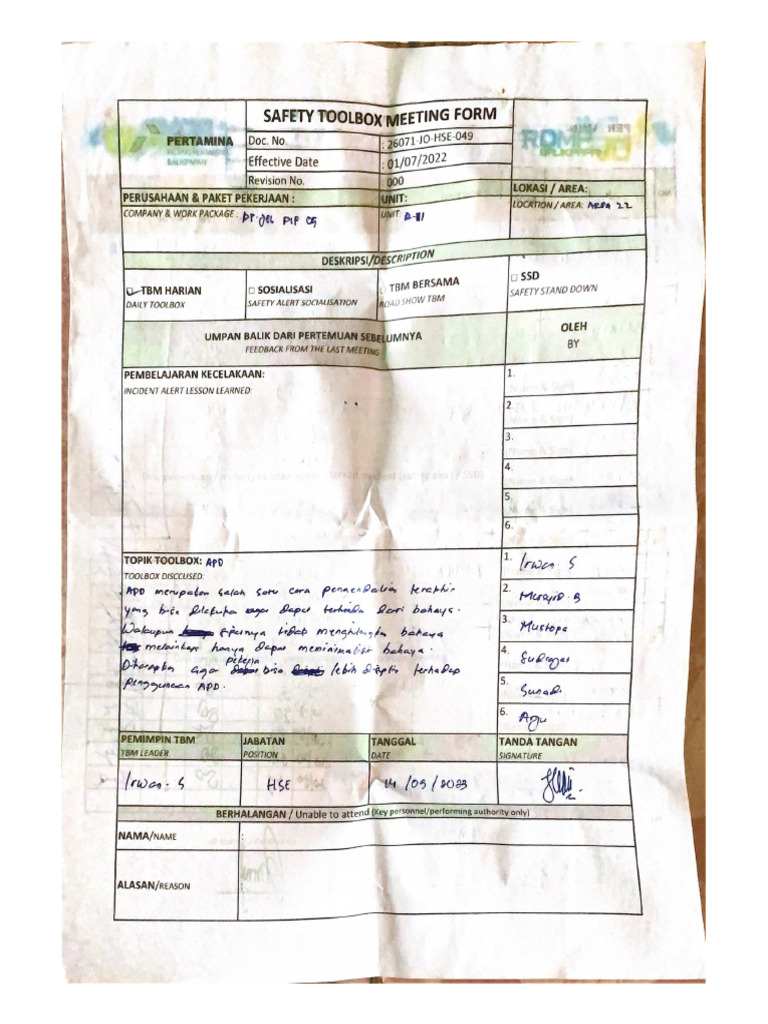 SAFETY TOOLBOX MEETING FORM
PERTAMINA
KILANG PERTAMINA
BALIKPAPAN
Doc. No. : 26071-JO-HSE-049
Effective Date : 01/07/2022
Revision No. : 000
RDMP
BALIKPAPAN
PERUSAHAAN & PAKET PEKERJAAN :
COMPANY & WORK PACKAGE : PT. JEL PIP
UNIT:
UNIT
LOKASI / AREA:
LOCATION / AREA: AREA 22
DESKRIPSI/DESCRIPTION
TBM HARIAN
DAILY TOOLBOX
SOSIALISASI
SAFETY ALERT SOCIALISATION
TBM BERSAMA
ROAD SHOW TBM
SSD
SAFETY STAND DOWN
UMPAN BALIK DARI PERTEMUAN SEBELUMNYA
FEEDBACK FROM THE LAST MEETING
OLEH
BY
PEMBELAJARAN KECELAKAAN:
INCIDENT ALERT LESSON LEARNED:
1.
2.
3.
4.
5.
6.
TOPIK TOOLBOX: APD
TOOLBOX DISCCUSED:
APD merupakan salah satu cara pengendalian terakhir
yang bisa dilakukan agar dapat terhindar dari bahaya.
Walaupun sifatnya tidak menghilangkan bahaya
melainkan hanya dapat meminimalisir bahaya.
Diharapkan agar pekerja bisa lebih disiplin terhadap
penggunaan APD.
1. Irwan. S
2.
3. Mustopa
4. Sudrajat
5. Sunadi
6.
PEMIMPIN TBM
TBM LEADER
JABATAN
POSITION
TANGGAL
DATE
TANDA TANGAN
SIGNATURE
Irwan. S
HSE
14 / 09 / 2023
BERHALANGAN / Unable to attend (Key personnel/performing authority only)
NAMA/NAME
ALASAN/REASON